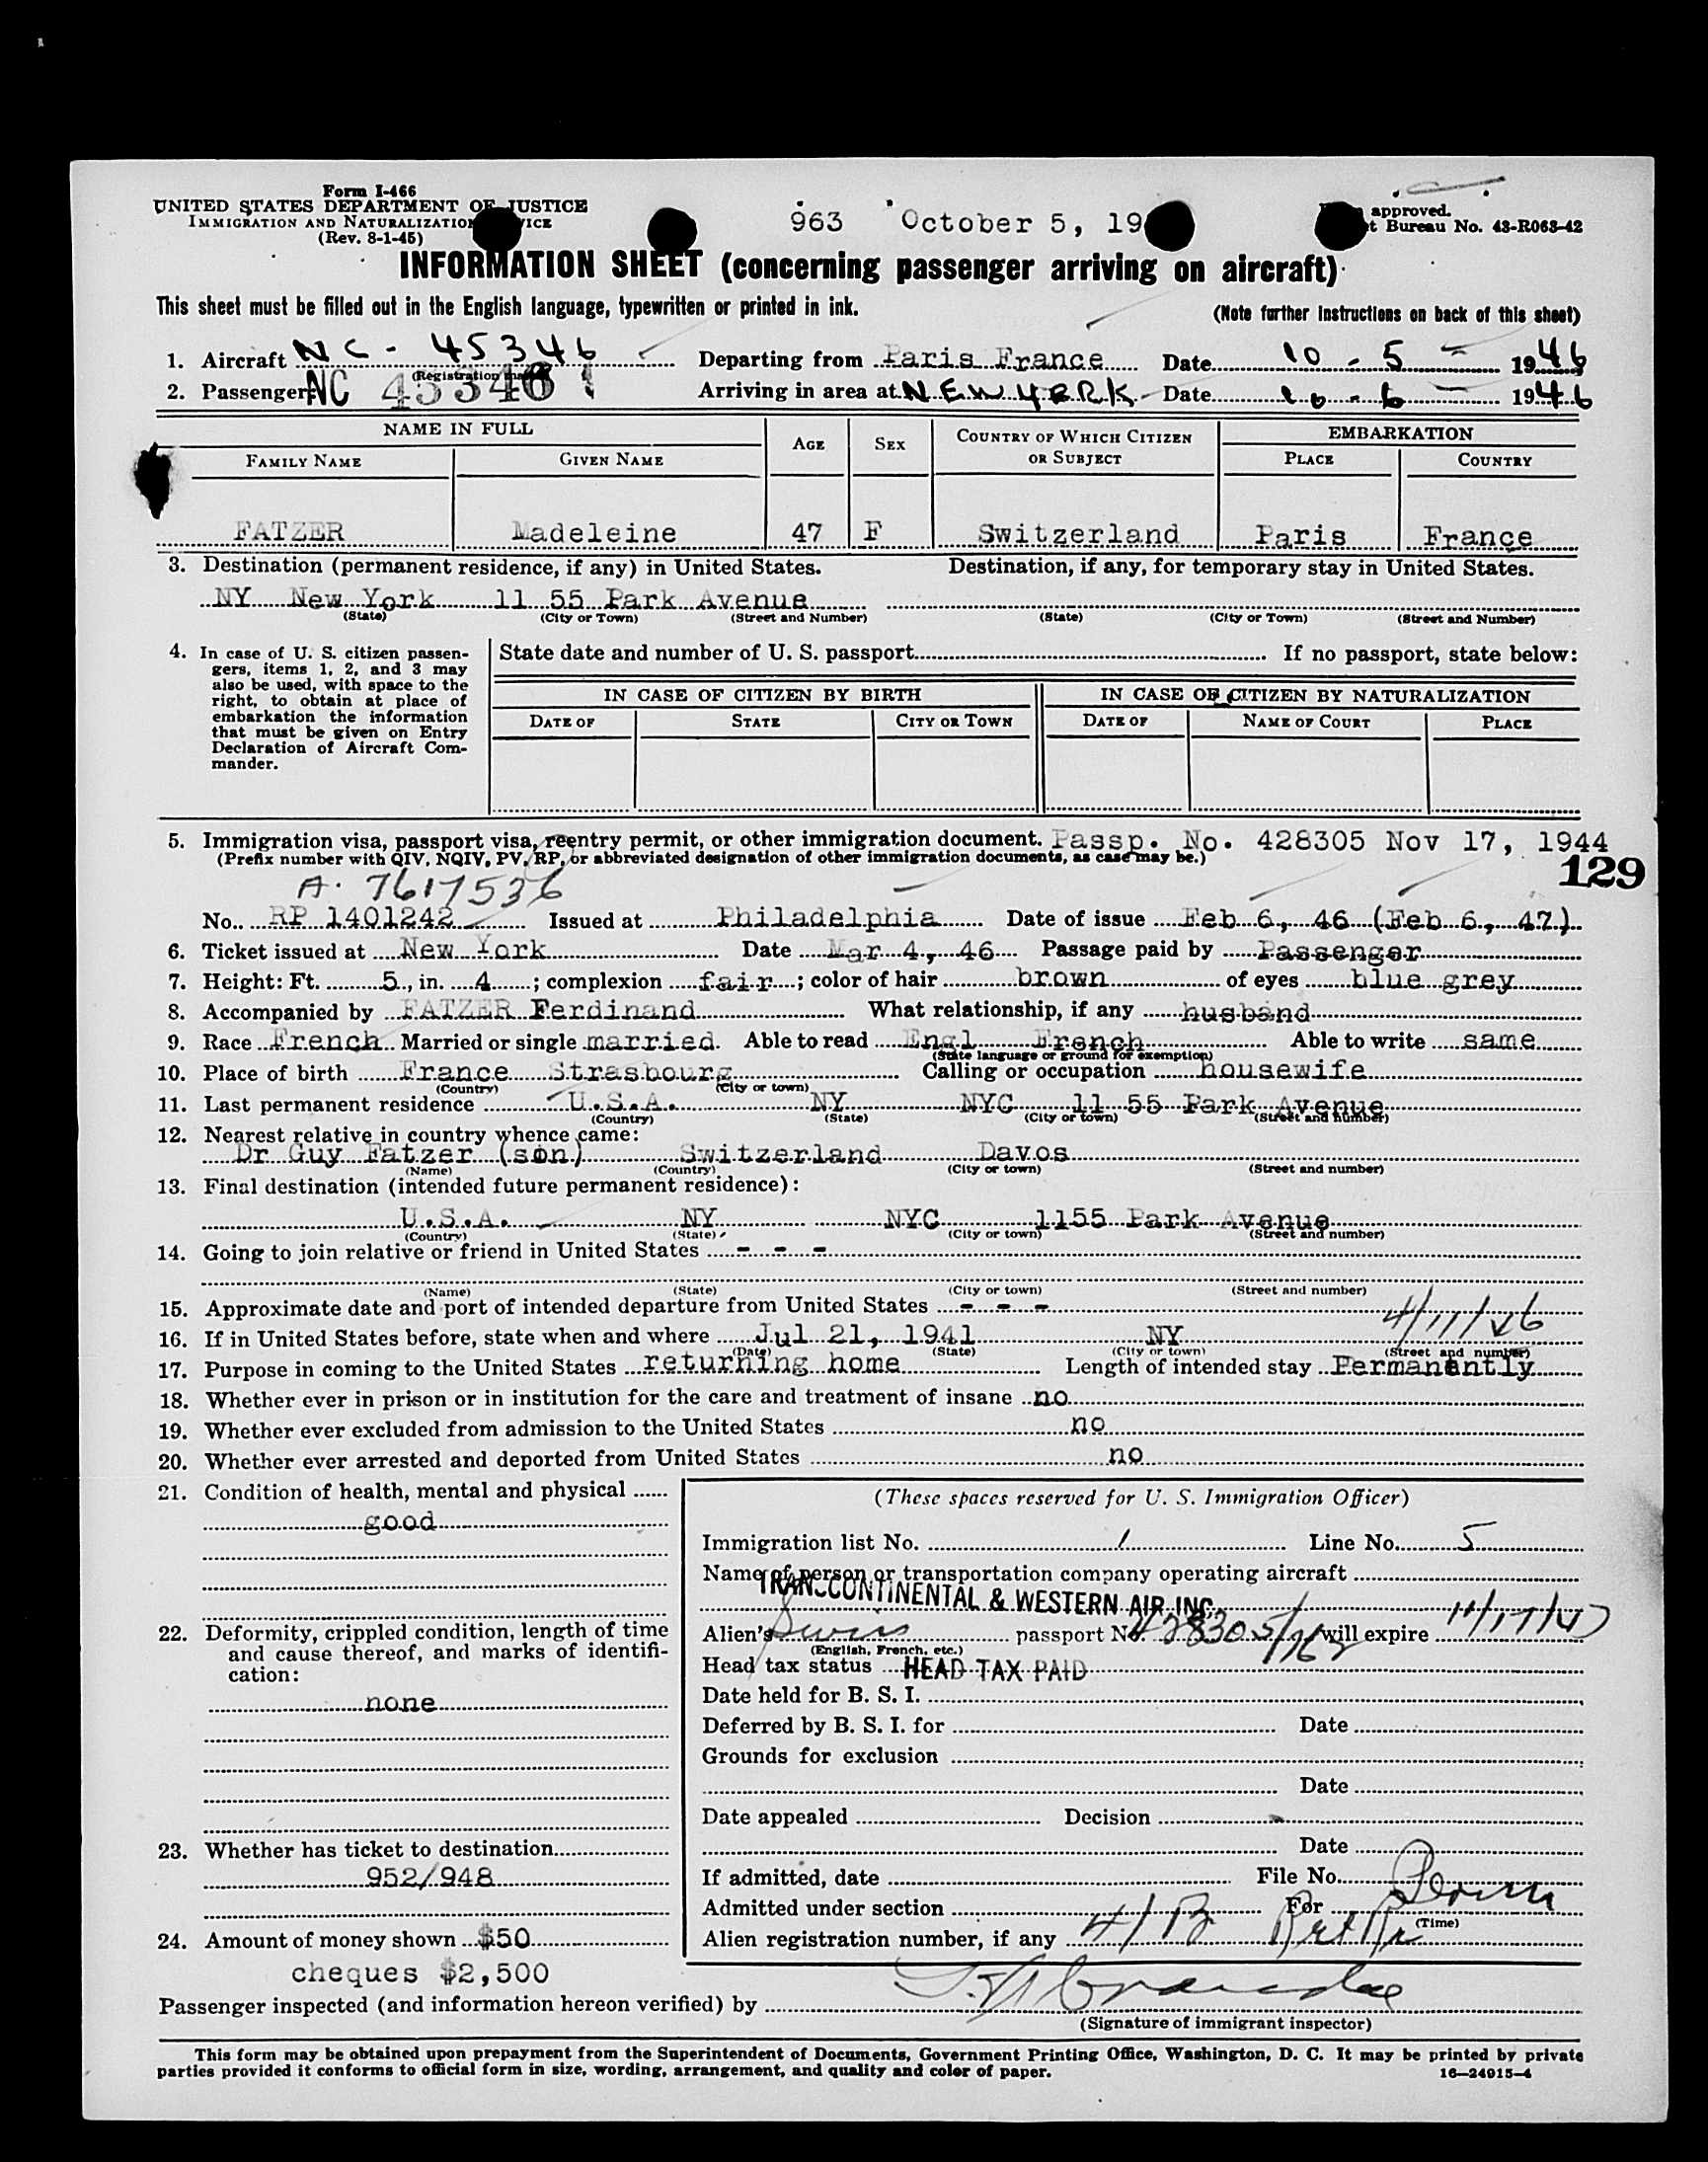 Form I-466
UNITED STATES DEPARTMENT OF JUSTICE
IMMIGRATION AND NATURALIZATION
(Rev. 8-1-45)
963 October 5, 19
approved.
Bureau No. 43-R063-42
INFORMATION SHEET (concerning passenger arriving on aircraft)
This sheet must be filled out in the English language, typewritten or printed in ink.
(Note further instructions on back of this sheet)
1. Aircraft NC - 45346 Departing from Paris France Date 10 - 5 - 1946
(Registration
2. Passenger NC 45346 Arriving in area at NEW YORK Date 10 - 6 - 1946
NAME IN FULL AGE SEX COUNTRY OF WHICH CITIZEN OR SUBJECT EMBARKATION
FAMILY NAME GIVEN NAME PLACE COUNTRY
FATZER Madeleine 47 F Switzerland Paris France
3. Destination (permanent residence, if any) in United States. Destination, if any, for temporary stay in United States.
NY New York 11 55 Park Avenue
(State) (City or Town) (Street and Number) (State) (City or Town) (Street and Number)
4. In case of U. S. citizen passen-
gers, items 1, 2, and 3 may
also be used, with space to the
right, to obtain at place of
embarkation the information
that must be given on Entry
Declaration of Aircraft Com-
mander.
State date and number of U. S. passport If no passport, state below:
IN CASE OF CITIZEN BY BIRTH IN CASE OF CITIZEN BY NATURALIZATION
DATE OF STATE CITY OR TOWN DATE OF NAME OF COURT PLACE
5. Immigration visa, passport visa, reentry permit, or other immigration document. Passp. No. 428305 Nov 17, 1944
(Prefix number with QIV, NQIV, PV, RP, or abbreviated designation of other immigration documents, as case may be.)
129
A. 7617536
No. RP 1401242 Issued at Philadelphia Date of issue Feb 6, 46 (Feb 6, 47)
6. Ticket issued at New York Date Mar 4, 46 Passage paid by Passenger
7. Height: Ft. 5, in. 4; complexion fair; color of hair brown of eyes blue grey
8. Accompanied by FATZER Ferdinand What relationship, if any husband
9. Race French Married or single married. Able to read Engl French Able to write same
(State language or ground for exemption)
10. Place of birth France Strasbourg Calling or occupation housewife
(Country) (City or town)
11. Last permanent residence U.S.A. NY NYC 11 55 Park Avenue
(Country) (State) (City or town) (Street and number)
12. Nearest relative in country whence came:
Dr Guy Fatzer (son) Switzerland Davos
(Name) (Country) (City or town) (Street and number)
13. Final destination (intended future permanent residence):
U.S.A. NY NYC 1155 Park Avenue
(Country) (State) (City or town) (Street and number)
14. Going to join relative or friend in United States - - -
(Name) (State) (City or town) (Street and number)
15. Approximate date and port of intended departure from United States - - -
4/11/46
16. If in United States before, state when and where Jul 21, 1941 NY
(Date) (State) (City or town) (Street and number)
17. Purpose in coming to the United States returning home Length of intended stay Permanently
18. Whether ever in prison or in institution for the care and treatment of insane no
19. Whether ever excluded from admission to the United States no
20. Whether ever arrested and deported from United States no
21. Condition of health, mental and physical
good
22. Deformity, crippled condition, length of time
and cause thereof, and marks of identifi-
cation:
none
23. Whether has ticket to destination
952/948
24. Amount of money shown $50
cheques $2,500
(These spaces reserved for U. S. Immigration Officer)
Immigration list No. 1 Line No. 5
Name of person or transportation company operating aircraft
TRANSCONTINENTAL & WESTERN AIR INC.
Alien's Swiss passport No. 428305/762 will expire 11/17/47
(English, French, etc.)
Head tax status HEAD TAX PAID
Date held for B. S. I.
Deferred by B. S. I. for Date
Grounds for exclusion
Date
Date appealed Decision
Date
If admitted, date File No.
Admitted under section 4/B For Perm
(Time)
Alien registration number, if any Ret
Passenger inspected (and information hereon verified) by
(Signature of immigrant inspector)
This form may be obtained upon prepayment from the Superintendent of Documents, Government Printing Office, Washington, D. C. It may be printed by private
parties provided it conforms to official form in size, wording, arrangement, and quality and color of paper.
16—24915-4